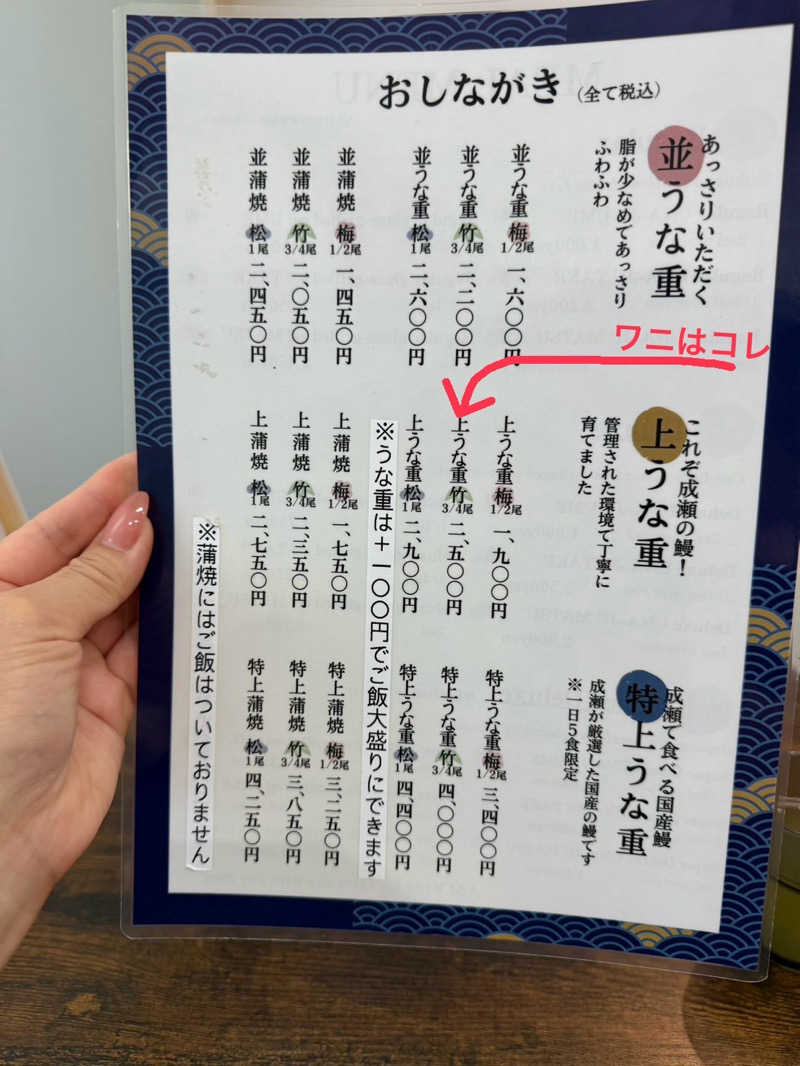 おしながき（全て税込）
あっさりいただく
並うな重
脂が少なめであっさり
ふわふわ
並うな重 梅 1/2尾 一、六〇〇円
並うな重 竹 3/4尾 二、二〇〇円
並うな重 松 1尾 二、六〇〇円
並蒲焼 梅 1/2尾 一、四五〇円
並蒲焼 竹 3/4尾 二、〇五〇円
並蒲焼 松 1尾 二、四五〇円
ワニはコレ
これぞ成瀬の鰻！
上うな重
管理された環境で丁寧に
育てました
上うな重 梅 1/2尾 一、九〇〇円
上うな重 竹 3/4尾 二、五〇〇円
上うな重 松 1尾 二、九〇〇円
上蒲焼 梅 1/2尾 一、七五〇円
上蒲焼 竹 3/4尾 二、三五〇円
上蒲焼 松 1尾 二、七五〇円
成瀬で食べる国産鰻
特上うな重
成瀬が厳選した国産の鰻です
※一日5食限定
特上うな重 梅 1/2尾 三、四〇〇円
特上うな重 竹 3/4尾 四、〇〇〇円
特上うな重 松 1尾 四、四〇〇円
特上蒲焼 梅 1/2尾 三、二五〇円
特上蒲焼 竹 3/4尾 三、八五〇円
特上蒲焼 松 1尾 四、二五〇円
※うな重は＋一〇〇円でご飯大盛りにできます
※蒲焼にはご飯はついておりません